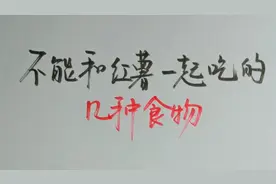 不能和红薯一起吃的
几种食物